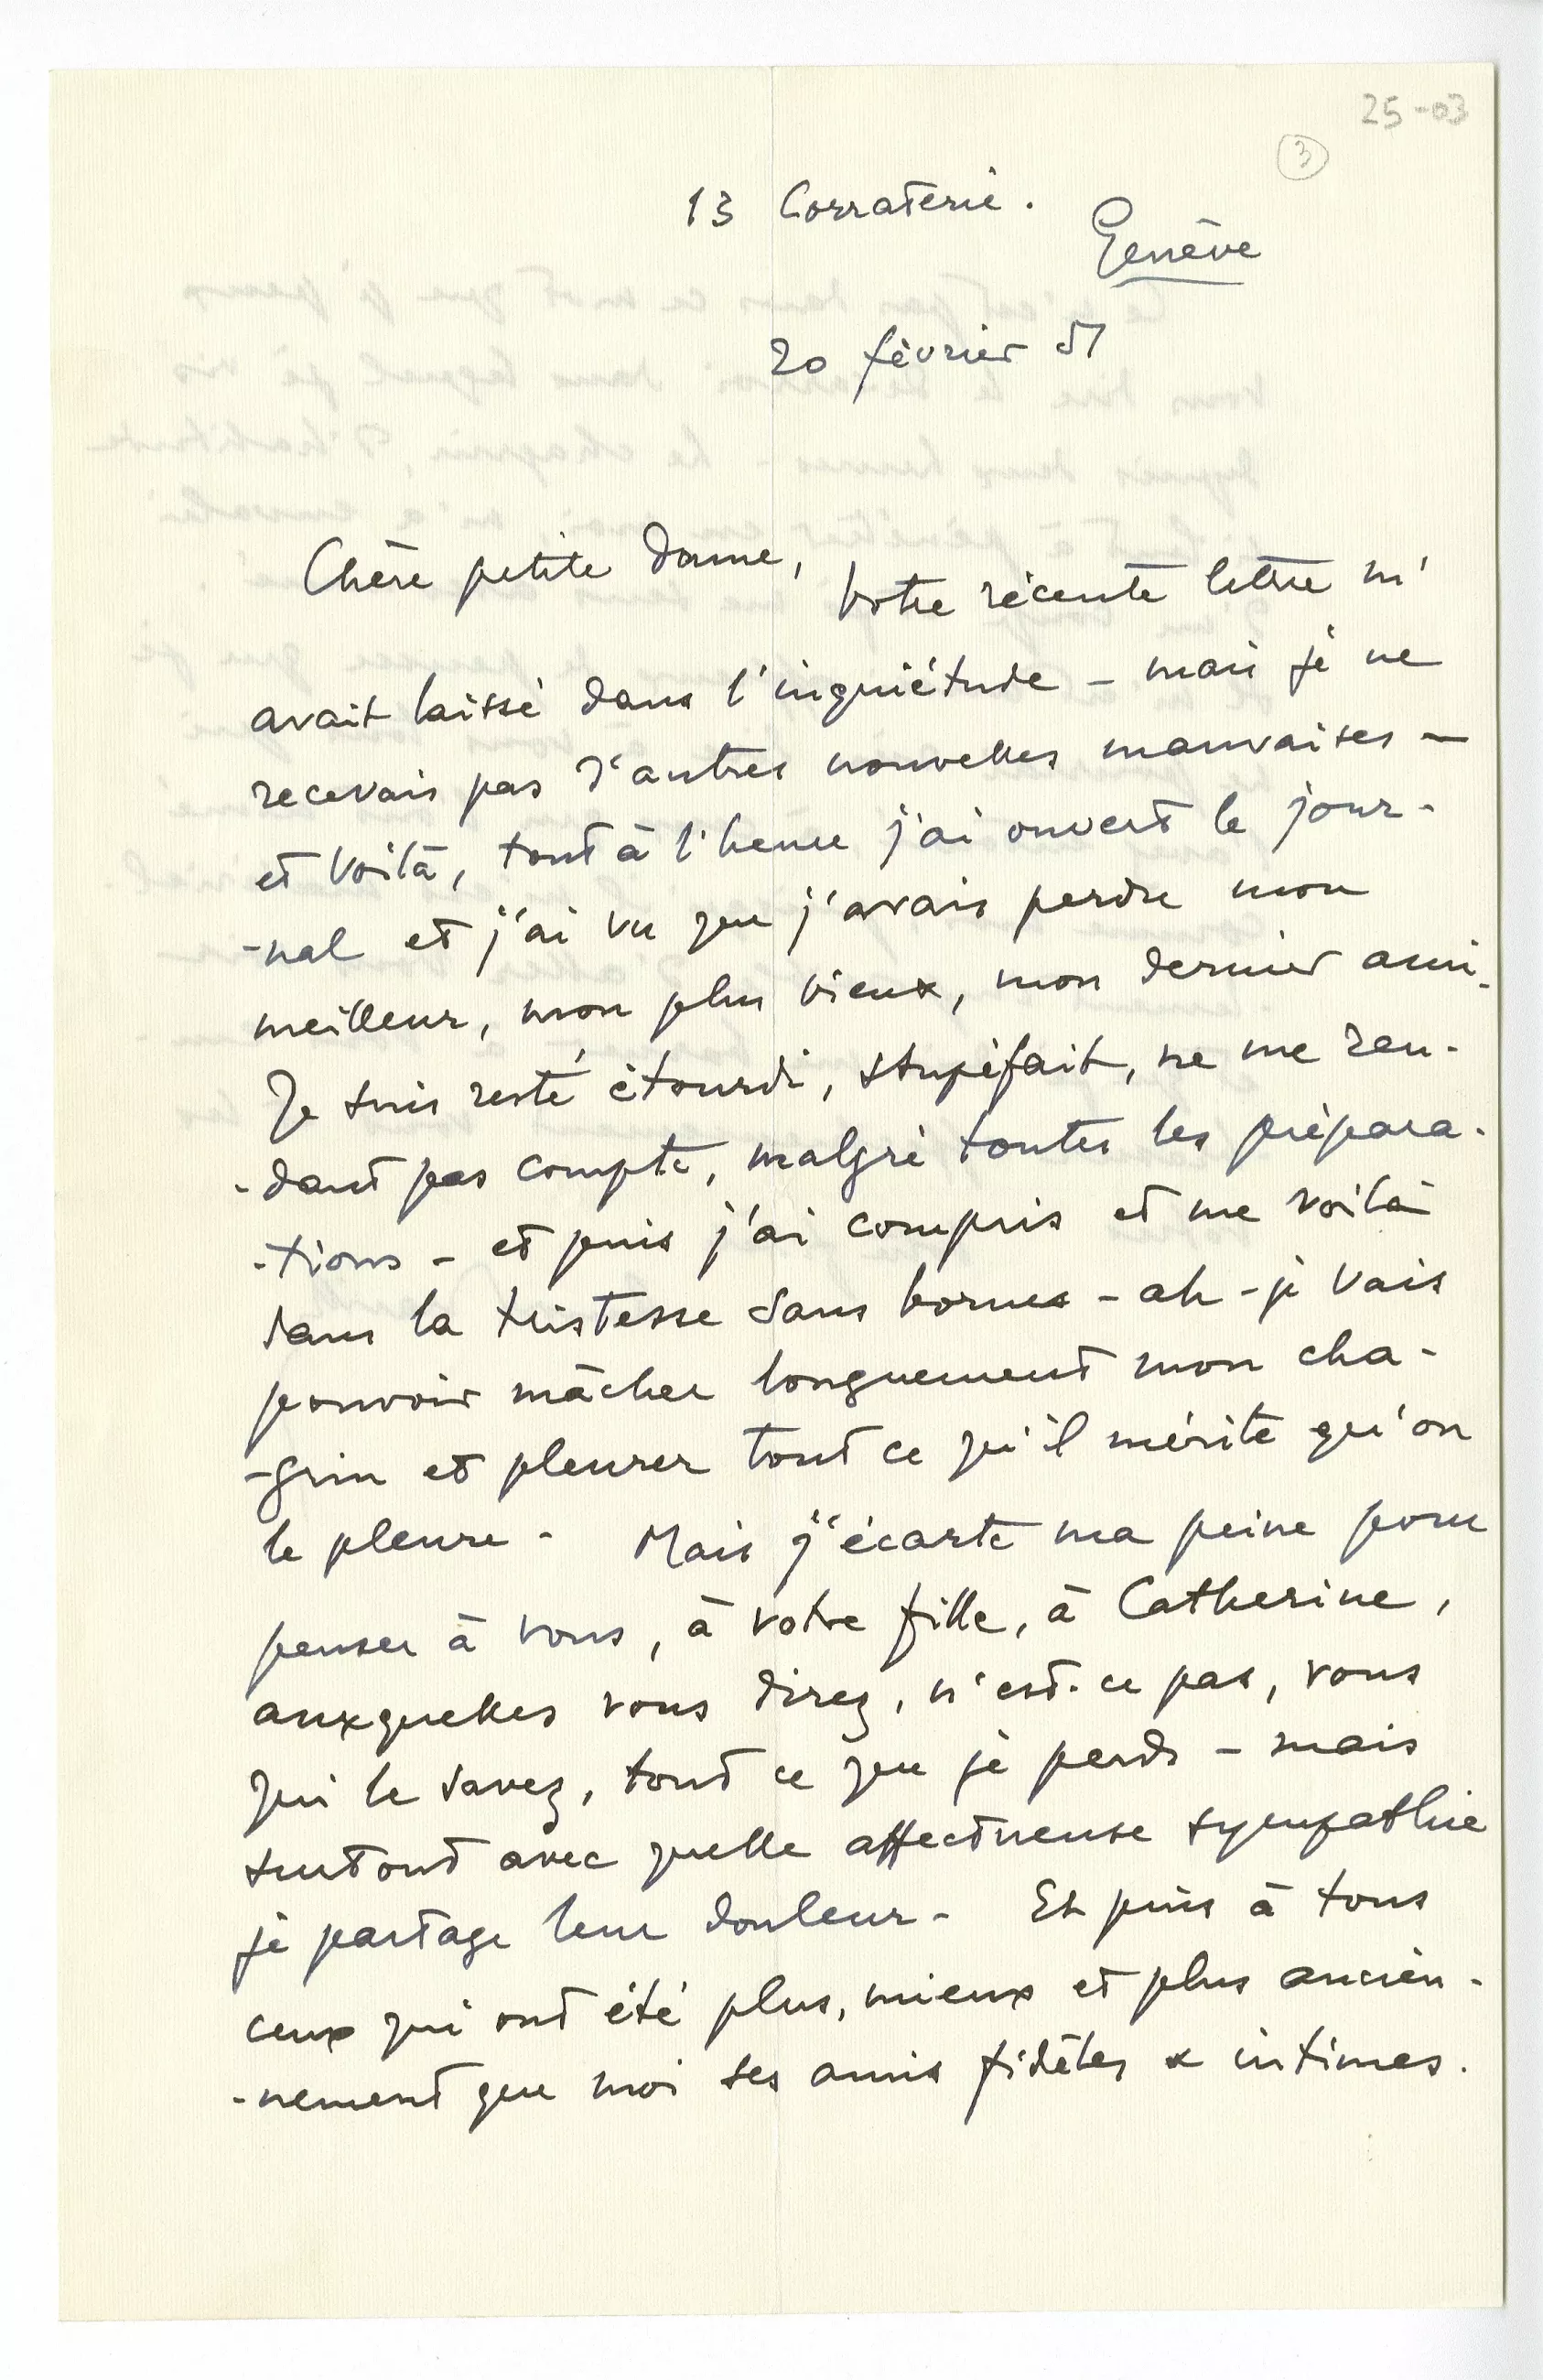 25-03
3
13 Corraterie.
Genève
20 février 51
Chère petite Dame,
Votre récente lettre m'
avait laissé dans l'inquiétude – mais je ne
recevais pas d'autres nouvelles mauvaises –
et voilà, tout à l'heure j'ai ouvert le jour-
-nal et j'ai vu que j'avais perdu mon
meilleur, mon plus vieux, mon dernier ami.
Je suis resté étourdi, stupéfait, ne me ren-
-dant pas compte, malgré toutes les prépara-
-tions – et puis j'ai compris et me voilà
dans la tristesse sans bornes – ah – je vais
pouvoir mâcher longuement mon cha-
-grin et pleurer tout ce qu'il mérite qu'on
le pleure – Mais j'écarte ma peine pour
penser à vous, à votre fille, à Catherine,
auxquelles vous direz, n'est-ce pas, vous
qui le savez, tout ce que je perds – mais
surtout avec quelle affectueuse sympathie
je partage leur douleur – Et puis à tous
ceux qui ont été plus, mieux et plus ancien-
-nement que moi ses amis fidèles & intimes.